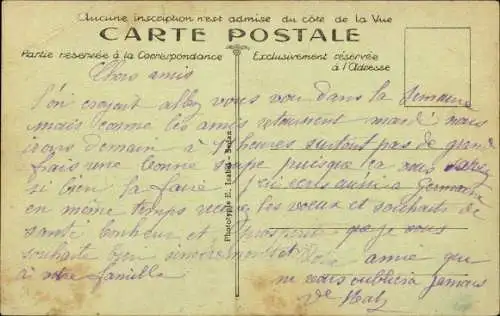 Aucune inscription n'est admise du côté de la Vue
CARTE POSTALE
Partie réservée à la Correspondance
Exclusivement réservée
à l'Adresse
Chers amis
l'on croyant allez vous voir dans la semaine
mais comme les amis retournent mardi nous
irons demain à heures surtout pas de grand
frais une bonne soupe puisque ça vous
si bien la faire ainsi a Germaine
en même temps les vœux et souhaits de
santé bonheur et que je vous
souhaite bien sincèrement et
à votre famille
amie qui
ne vous oubliera jamais
de
Phototypie - Sedan